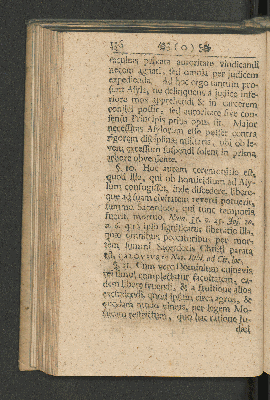 136 (o)
privatus privata autoritate vindicandi
necem agnati, sed omnia per judicem
expedienda. Ad hoc ergo tantum pro-
sunt Asyla, ne delinquens a judice infe-
riore mox apprehendi, & in carcerem
conjici possit, sed autoritate sive con-
sensu Principis prius opus sit. Major
necessitas Asylorum esse posset contra
rigorem disciplinæ militaris, ubi ob le-
vem excessum suspendi solent in prima
arbore obveniente.
§. 10. Hoc autem ceremoniale est,
quod ille, qui ob homicidium ad Asy-
lum confugisset, inde discedere, libere-
que ad suam civitatem reverti potuerit,
summo Sacerdote, qui tunc temporis
fuerat, mortuo. Num. 35. v. 25. Jos. 20.
v. 6. quo ipso significatur liberatio illa,
quæ omnibus peccatoribus per mor-
tem summi Sacerdotis Christi parata
est,
§. 11. Cum vero Dominium cujusvis
rei suæ, complectatur facultatem, ea-
dem libere fruendi, & a fruitione alios
excludendi, quod ipsum circa agros, &
quodam modo vineas, per legem Mo-
saicam restrictum, quæ hac ratione Ju-
dæi